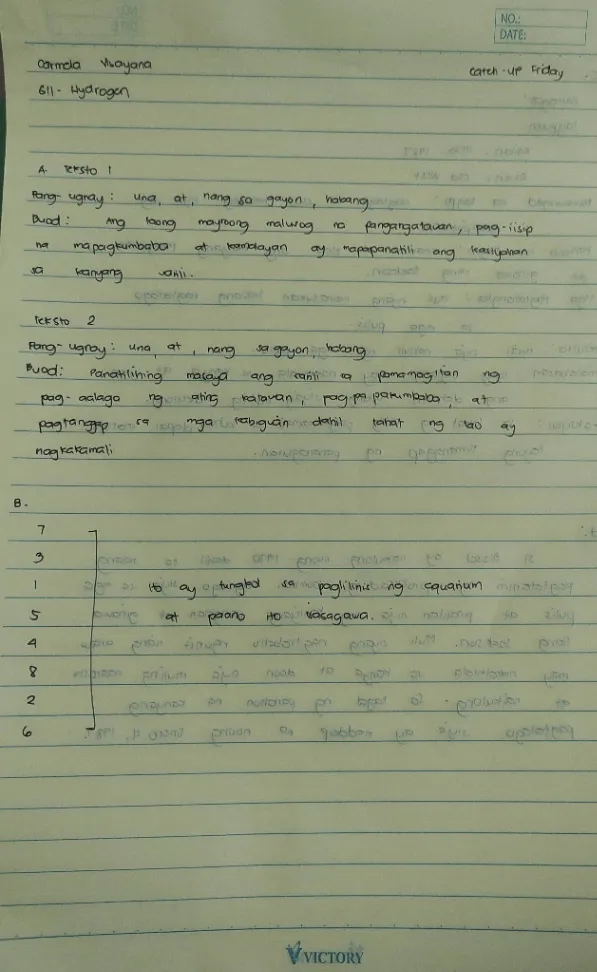 NO.:
DATE:
Carmela Visayana
Catch-up Friday
G11- Hydrogen
A. Teksto 1
Pang-ugnay: una, at, nang sa gayon, habang
Buod: Ang taong mayroong malusog na pangangatawan, pag-iisip
na mapagkumbaba at kamalayan ay mapapanatili ang kasiyahan
sa kanyang sarili.
Teksto 2
Pang-ugnay: una, at, nang sa gayon, habang
Buod: Panatilihing masaya ang sarili sa pamamagitan ng
pag-aalaga ng ating katawan, pagpapakumbaba, at
pagtanggap sa mga kabiguan dahil lahat ng tao ay
nagkakamali
B.
7
3
1 Ito ay tungkol sa paglilinis ng aquarium
5 at paano ito isasagawa.
4
8
2
6
VICTORY